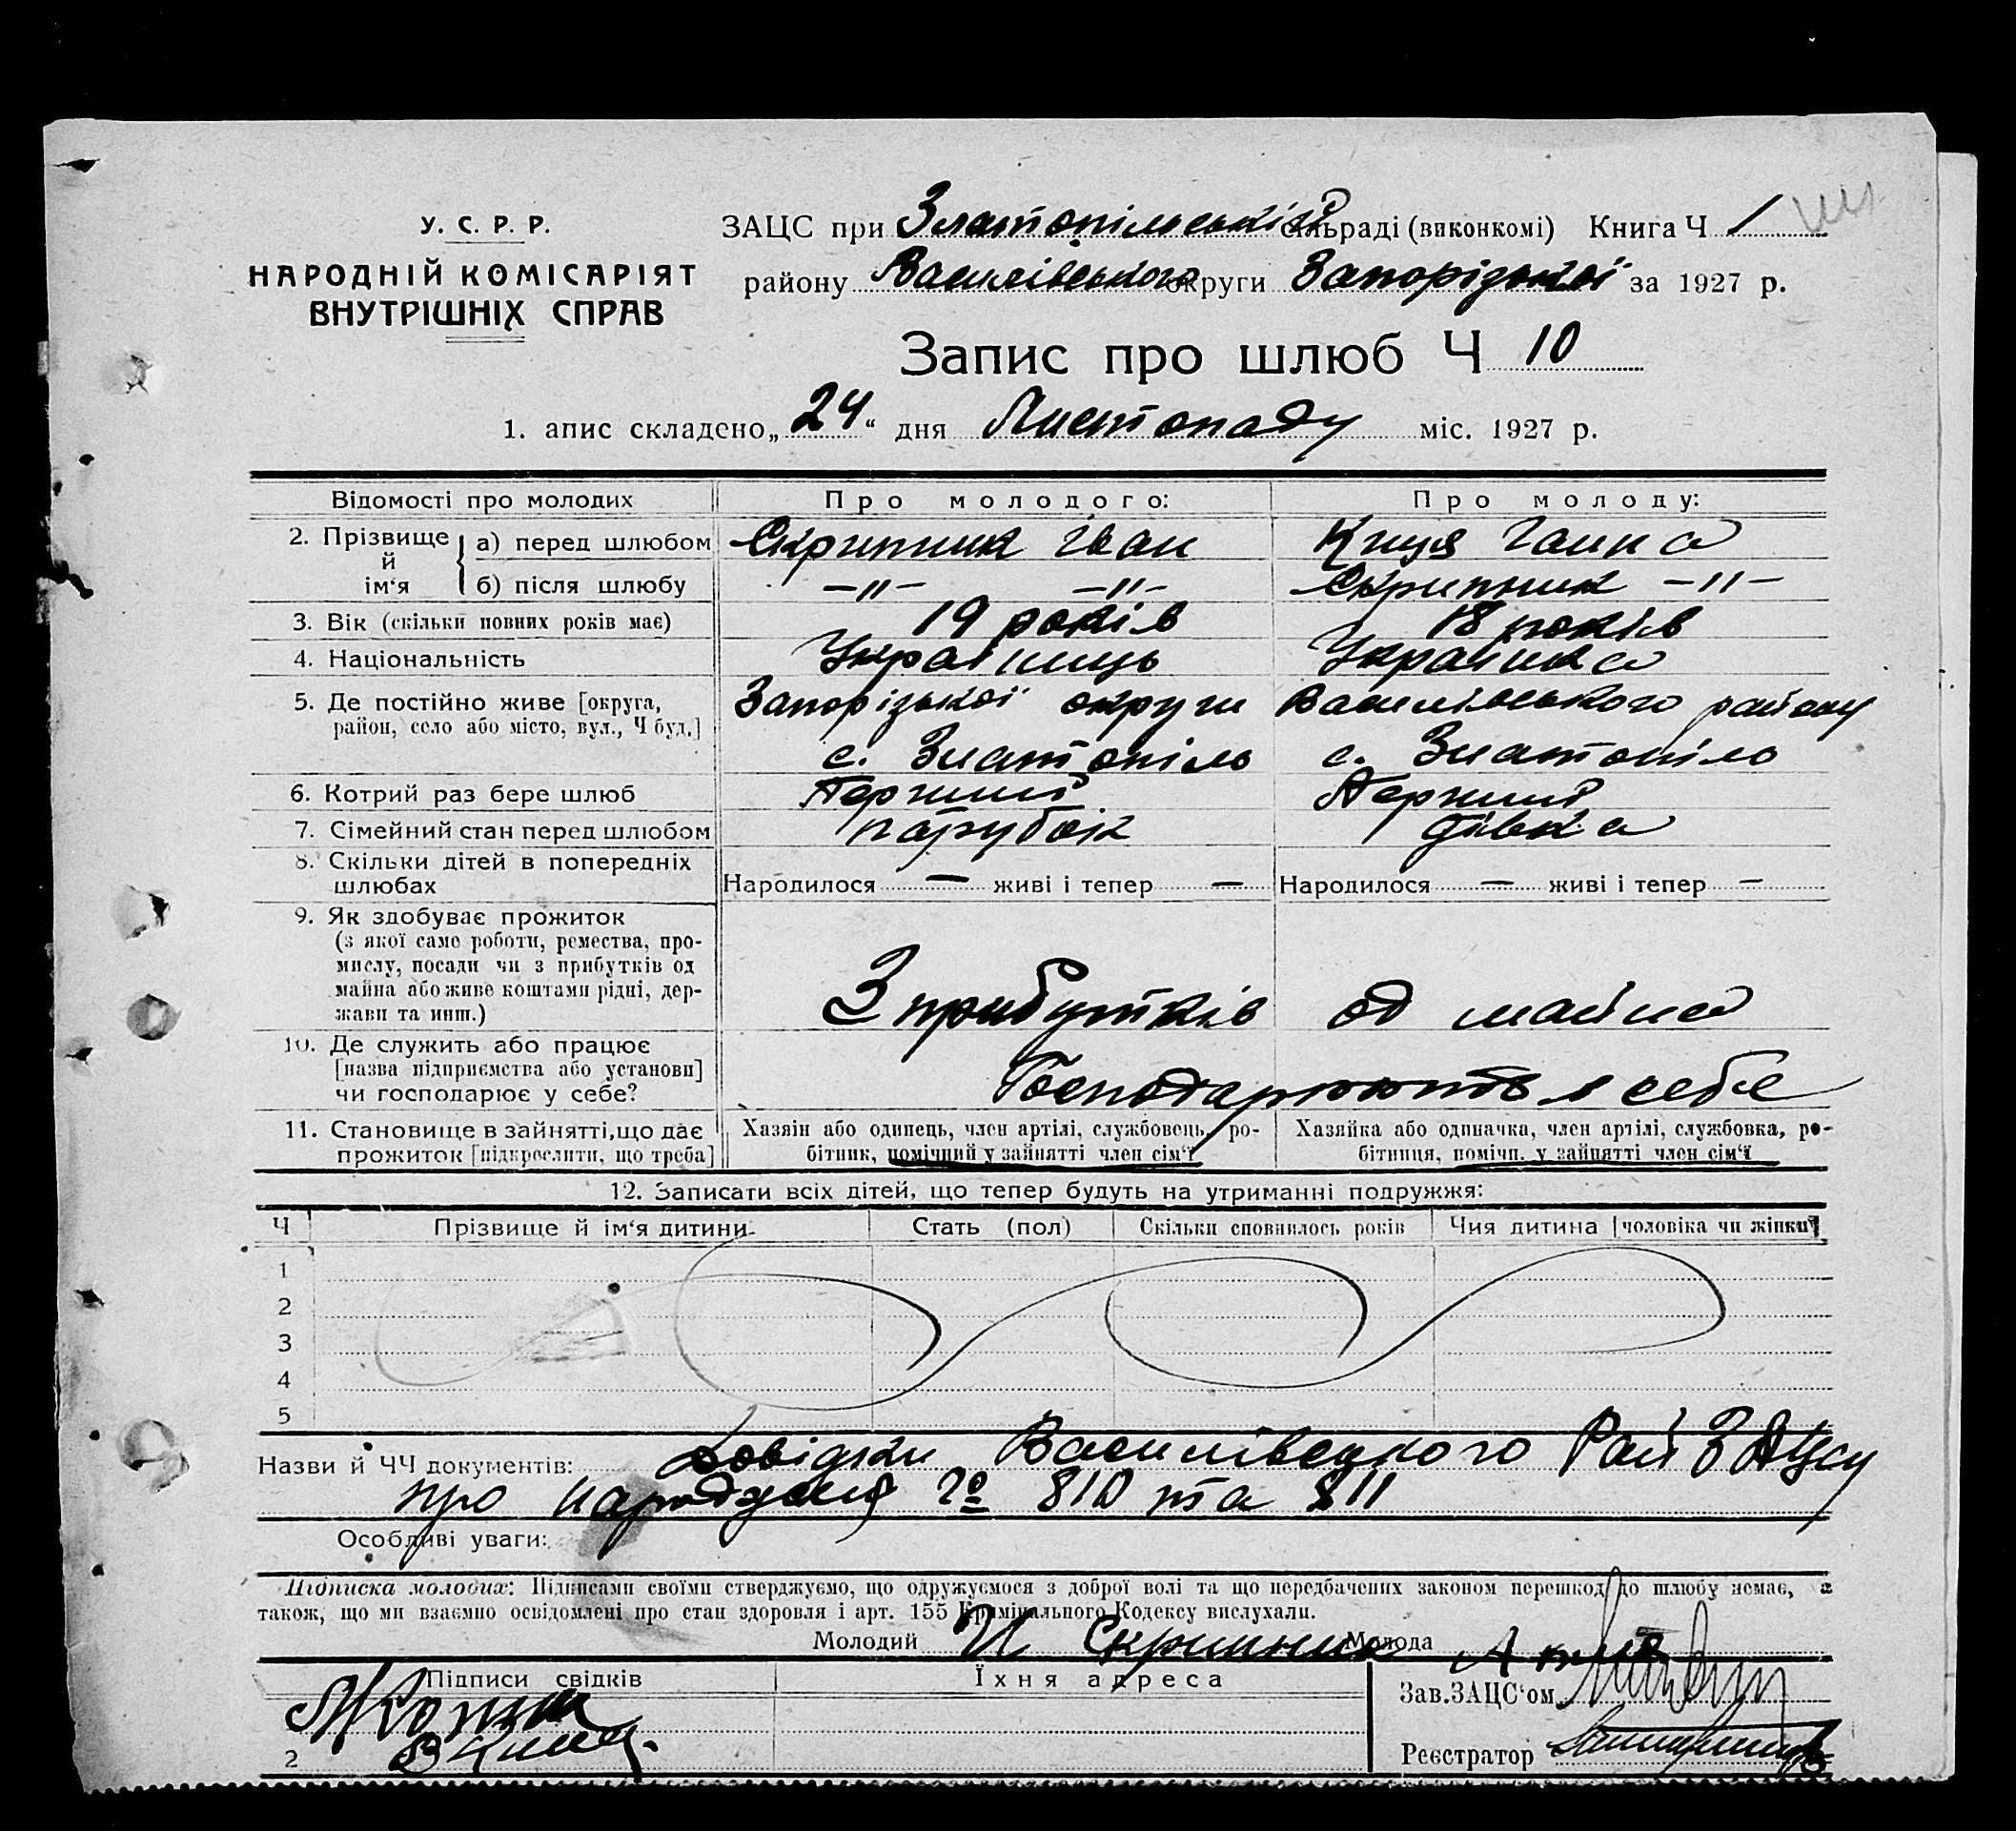 У. С. Р. Р.
НАРОДНІЙ КОМІСАРІЯТ
ВНУТРІШНІХ СПРАВ
ЗАЦС при Златопільській сільраді (виконкомі) Книга Ч 1
району Василівського округи Запорізької за 1927 р.
Запис про шлюб Ч 10
1. апис складено „24“ дня Листопаду міс. 1927 р.
Відомості про молодих Про молодого: Про молоду:
2. Прізвище й ім‘я а) перед шлюбом Скрипник Іван Куця Ганна
б) після шлюбу —"— —"— Скрипник —"—
3. Вік (скільки повних років має) 19 років 18 років
4. Національність Українець Українка
5. Де постійно живе [округа, Запорізької округи Василівського району
район, село або місто, вул., Ч буд.] с. Златопіль с. Златопіль
6. Котрий раз бере шлюб Перший Перший
7. Сімейний стан перед шлюбом парубок дівка
8. Скільки дітей в попередніх
шлюбах Народилося — живі і тепер — Народилося — живі і тепер —
9. Як здобуває прожиток
(з якої саме роботи, ремества, про-
мислу, посади чи з прибутків од
майна або живе коштами рідні, дер- З прибутків од майна
жави та инш.)
10. Де служить або працює
[назва підприємства або установи]
чи господарює у себе? Господарюють у себе
11. Становище в зайнятті, що дає Хазяїн або одинець, член артілі, службовець, ро- Хазяйка або одиначка, член артілі, службовка, ро-
прожиток [підкреслити, що треба] бітник, помічний у зайнятті член сім‘ї бітниця, помічн. у зайнятті член сім‘ї
12. Записати всіх дітей, що тепер будуть на утриманні подружжя:
Ч Прізвище й ім‘я дитини Стать (пол) Скільки сповнилось років Чия дитина [чоловіка чи жінки]
1
2
3
4
5
Назви й ЧЧ документів: Довідки Василівського Рай ЗАЦСу
про народження № 810 та 811
Особливі уваги:
Підписка молодих: Підписами своїми стверджуємо, що одружуємося з доброї волі та що передбачених законом перешкод до шлюбу немає, а
також, що ми взаємно освідомлені про стан здоровля і арт. 155 Кримінального Кодексу вислухали.
Молодий И Скрипник Молода А
Підписи свідків Їхня адреса
Зав. ЗАЦС‘ом
2
Реєстратор